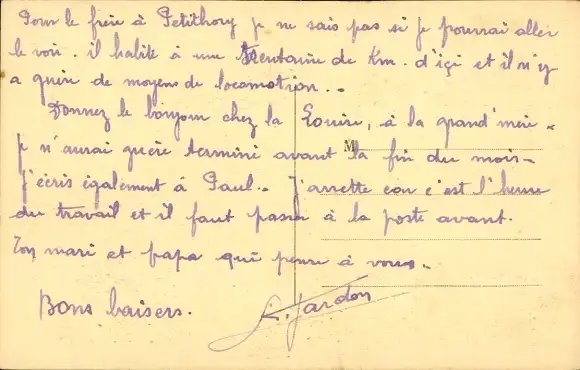 Pour le frère à Petithory je ne sais pas si je pourrai aller
le voir. il habite à une trentaine de Km. d'içi et il n'y
a guère de moyens de locomotion..
Donnez le bonjour chez la Louise, à la grand'mère.
Je n'aurai guère terminé avant la fin du mois-
M
J'écris également à Paul.. J'arrette car c'est l'heure
du travail et il faut passer à la poste avant.
Ton mari et papa qui pense à vous.
Bons baisers. L. Jardon